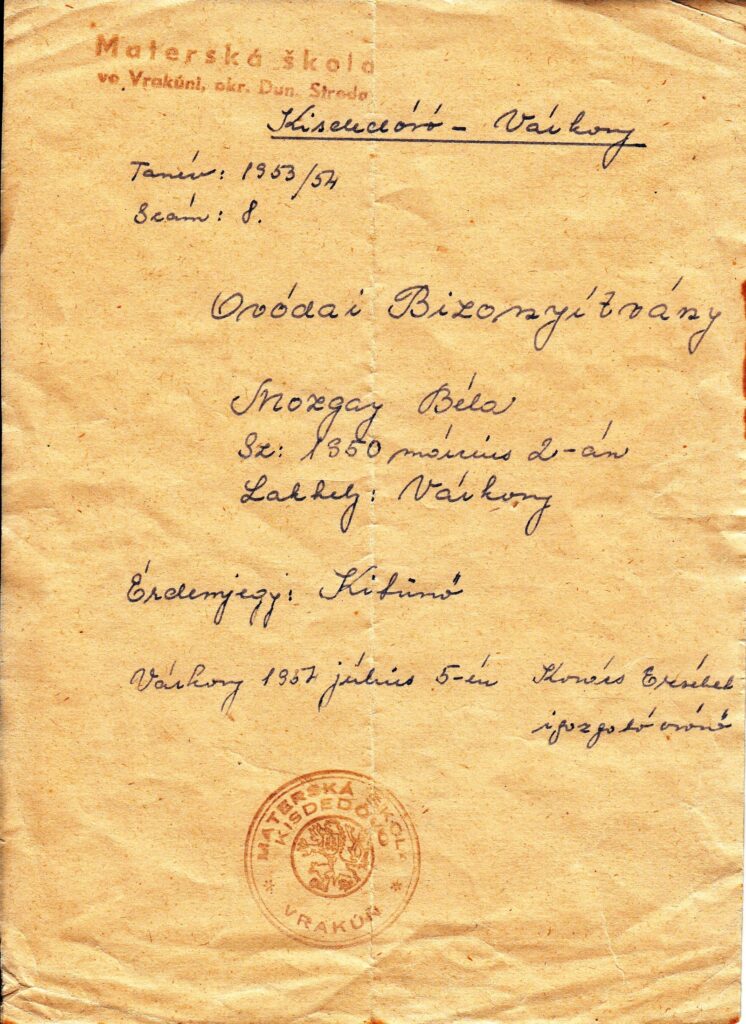 Materská škola
ve Vrakúni, okr. Dun. Streda
Kisdedóvó - Várkony
Tanév: 1953/54
Szám: 8.
Ovódai Bizonyítvány
Mozgay Béla
Sz: 1950 március 2-án
Lakhely: Várkony
Érdemjegy: Kitünő
Várkony 1954 július 5-én Kovács Erzsébet
igazgató óvónő
MATERSKÁ ŠKOLA
KISDEDÓVÓ
* VRAKÚŇ *